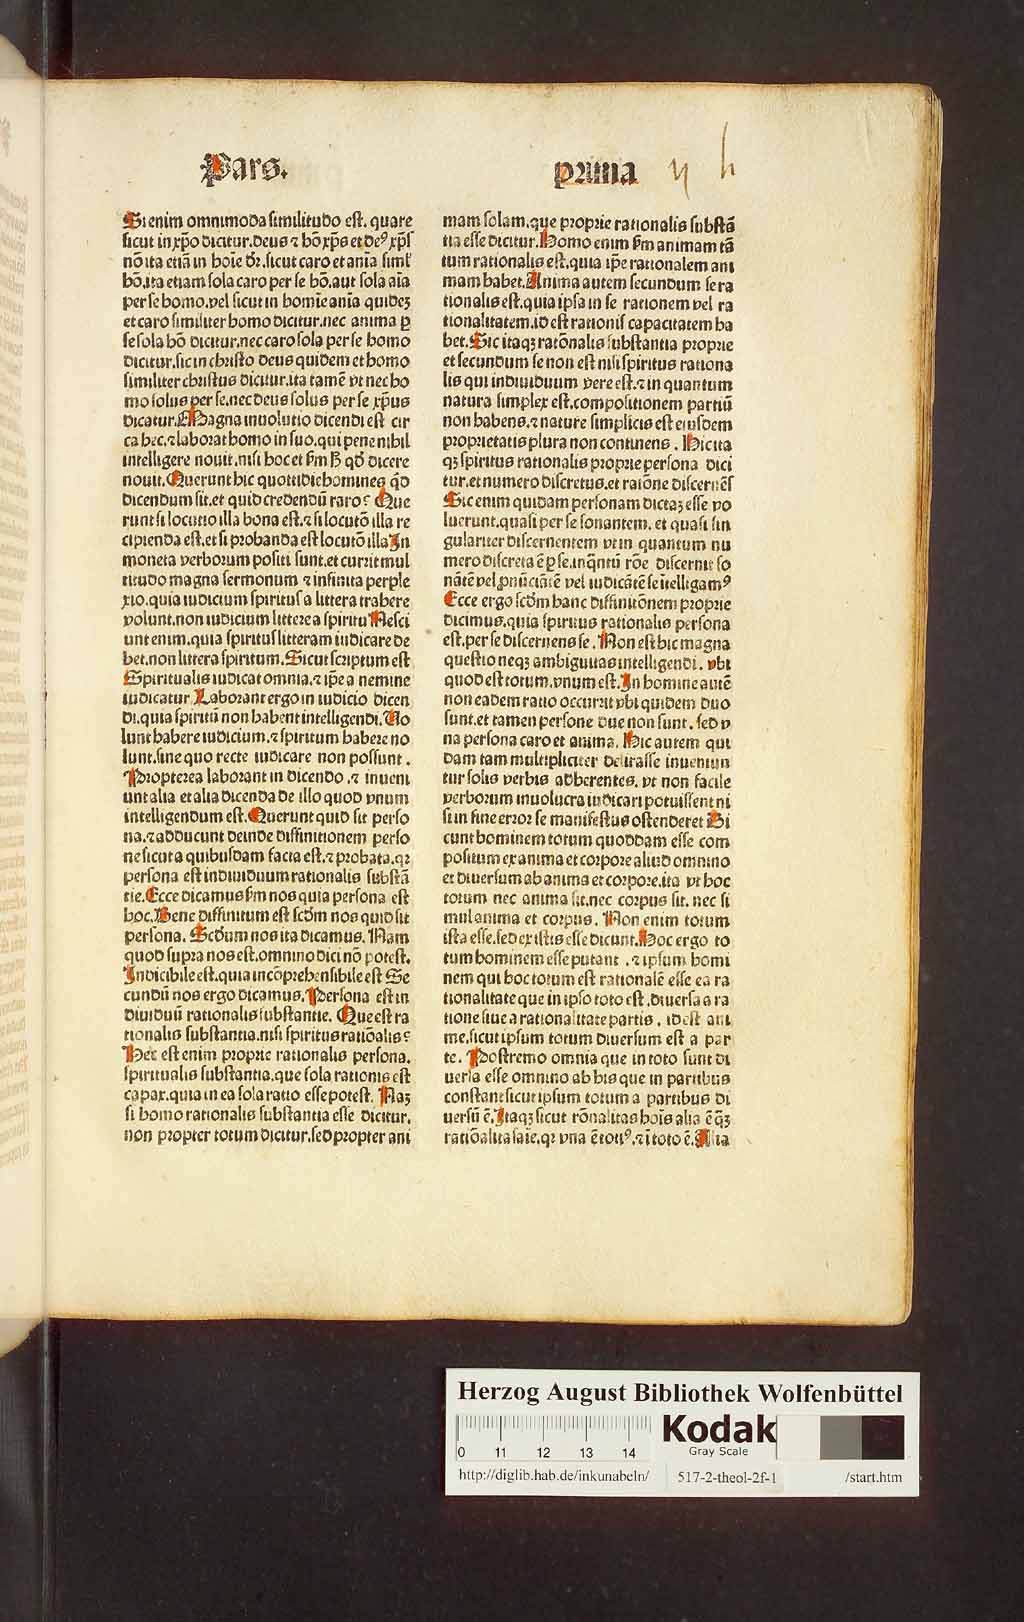 Pars.
prima
Si enim omnimoda similitudo est. quare
sicut in xp̄o dicitur. deus ⁊ hō xp̄s et deꝰ xp̄s
nō ita etiā in hoīe dr̄. sicut caro et anīa simĺ
hō. ita etiam sola caro per se hō. aut sola aīa
per se homo. vel sicut in homīe anīa quideꝫ
et caro similiter homo dicitur. nec anima ꝑ
se sola hō dicitur. nec caro sola per se homo
dicitur. sic in christo deus quidem et homo
similiter christus dicitur. ita tamē vt nec ho
mo solus per se. nec deus solus per se xp̄us
dicatur. Magna inuolutio dicendi est cir
ca hec. ⁊ laborat homo in suo. qui pene nihil
intelligere nouit. nisi hoc et ẜm ꝙ dicere
nouit. Querunt hic quottidie homines qd̄
dicendum sit. et quid credendū raro? Que
runt si locutio illa bona est. ⁊ si locutō illa re
cipienda est. et si probanda est locutō illa In
moneta verborum positi sunt. et currit mul
titudo magna sermonum ⁊ infinita perple
xio. quia iudicium spiritus a littera trahere
volunt. non iudicium littere a spiritu Nesci
unt enim. quia spiritus litteram iudicare de
bet. non littera spiritum. Sicut scriptum est
Spiritualis iudicat omnia. ⁊ ip̄e a nemine
iudicatur Laborant ergo in iudicio dicen
di. quia spiritū non habent intelligendi. No
lunt habere iudicium. ⁊ spiritum habere no
lunt. sine quo recte iudicare non possunt.
Propterea laborant in dicendo. ⁊ inueni
unt alia et alia dicenda de illo quod vnum
intelligendum est. Querunt quid sit perso
na. ⁊ adducunt deinde diffinitionem perso
ne sicut a quibusdam facta est. ⁊ probata. qꝛ
persona est indiuiduum rationalis substā
tie. Ecce dicamus ẜm nos quia persona est
hoc. Bene diffinitum est scd̄m nos quid sit
persona. Scd̄um nos ita dicamus. Nam
quod supra nos est. omnino dici nō potest.
Indicibile est. quia incōprehensibile est Se
cundū nos ergo dicamus. Persona est in
diuiduū rationalis substantie. Que est ra
tionalis substantia. nisi spiritus ratiōalis?
Hec est enim proprie rationalis persona.
spiritualis substantia. que sola rationis est
capax. quia in ea sola ratio esse potest. Naꝫ
si homo rationalis substantia esse dicitur.
non propter totum dicitur. sed propter ani
mam solam. que proprie rationalis substā
tia esse dicitur. Homo enim ẜm animam tā
tum rationalis est. quia ip̄e rationalem ani
mam habet. Anima autem secundum se ra
tionalis est. quia ipsa in se rationem vel ra
tionalitatem. id est rationis capacitatem ha
bet. Sic itaqꝫ ratōnalis substantia proprie
et secundum se non est nisi spiritus rationa
lis qui indiuiduum vere est. ⁊ in quantum
natura simplex est. compositionem partiū
non habens. ⁊ nature simplicis est eiusdem
proprietatis plura non continens. Hic ita
qꝫ spiritus rationalis proprie persona dici
tur. et numero discretus. et ratiōne discernēs
Sic enim quidam personam dictaꝫ esse vo
luerunt. quasi per se sonantem. et quasi sin
gulariter discernentem vt in quantum nu
mero discreta ē ꝑ se. inqntū rōe discernit so
nātē vel ꝓnūciātē vel iudicātē se ītelligamꝰ
Ecce ergo scd̄m hanc diffinitōnem proprie
dicimus. quia spiritus rationalis persona
est. per se discernens se. Non est hic magna
questio neqꝫ ambiguitas intelligendi. vbi
quod est totum. vnum est. In homine autē
non eadem ratio occurrit vbi quidem duo
sunt. et tamen persone due non sunt. sed v
na persona caro et anima. Hic autem qui
dam tam multipliciter delirasse inueniun
tur solis verbis adherentes. vt non facile
verborum inuolucra iudicari potuissent ni
si in fine error se manifestus ostenderet Di
cunt hominem totum quoddam esse com
positum ex anima et corpore aliud omnino
et diuersum ab anima et corpore. ita vt hoc
totum nec anima sit. nec corpus sit. nec si
mul anima et corpus. Non enim totum
ista esse. sed ex istis esse dicunt. Hoc ergo to
tum hominem esse putant. ⁊ ipsum homi
nem qui hoc totum est rationalē esse ea ra
tionalitate que in ipso toto est. diuersa a ra
tione siue a rationalitate partis. id est ani
me. sicut ipsum totum diuersum est a par
te. Postremo omnia que in toto sunt di
uersa esse omnino ab his que in partibus
constant sicut ipsum totum a partibus di
uersū ē. Itaqꝫ sicut rōnalitas hoīs alia ē qꝫ
ratiōalitas aīe. qꝛ vna ē totiꝰ. ⁊ ī toto ē. Alia
Herzog August Bibliothek Wolfenbüttel
Kodak
Gray Scale
0 11 12 13 14
http://diglib.hab.de/inkunabeln/ 517-2-theol-2f-1 /start.htm